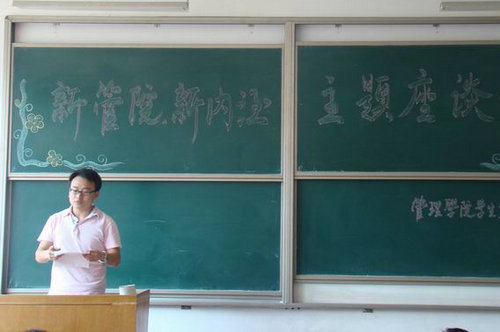 新管院,新内涵 主题座谈
管理學院学生